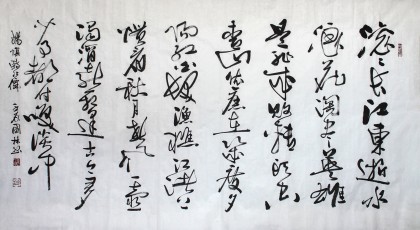 滚々长江東逝水
浪花淘尽英雄
是非成败转头空
青山依舊在几度夕
阳红白发渔樵江渚上
惯看秋月春风一壶
濁酒喜相逢古今多
少事都付笑谈中